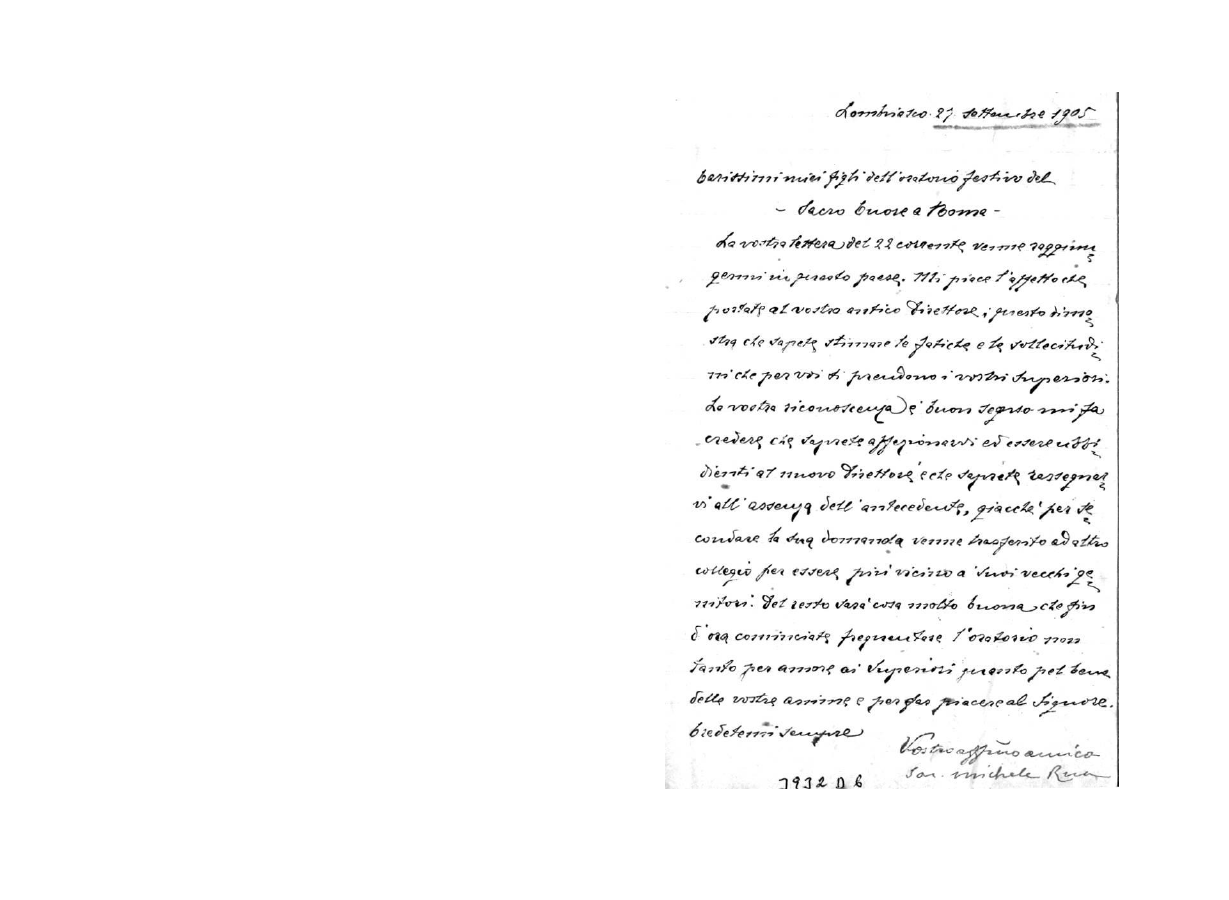 Lombriasco 27 settembre 1905
Carissimi miei figli dell'oratorio festivo del
- Sacro Cuore a Roma -
La vostra lettera del 22 corrente venne raggiun=
germi in questo paese. Mi piace l'affetto che
portate al vostro antico Direttore; questo dimo=
stra che sapete stimare le fatiche e le sollecitudi=
ni che per voi si prendono i vostri Superiori.
La vostra riconoscenza è buon segno mi fa
credere che saprete affezionarvi ed essere ubbi=
dienti al nuovo Direttore e che saprete rassegnar=
vi all'assenza dell'antecedente, giacchè per se=
condare la sua domanda venne trasferito ad altro
collegio per essere più vicino a' suoi vecchi ge=
nitori. Del resto sarà cosa molto buona che fin
d'ora cominciate frequentare l'oratorio non
tanto per amore ai Superiori quanto pel bene
delle vostre anime e per far piacere al Signore.
Credetemi sempre
Vostro aff.mo amico
Sac. Michele Rua
3932 D 6